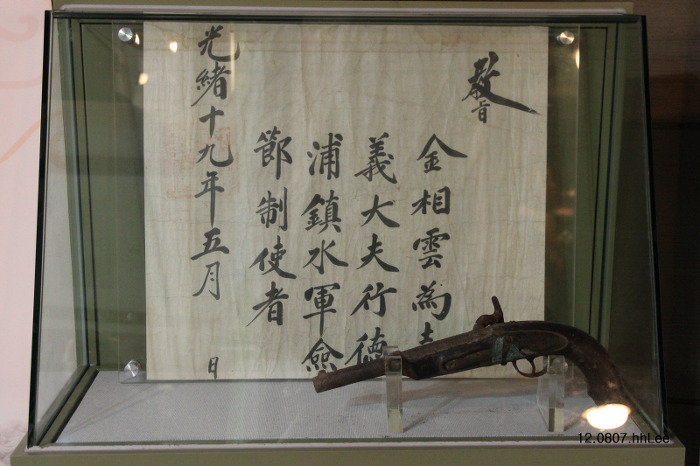 敎旨
金相雲為
義大夫行德
浦鎮水軍僉
節制使者
光緒十九年五月 日
12.0807.hhl.ee